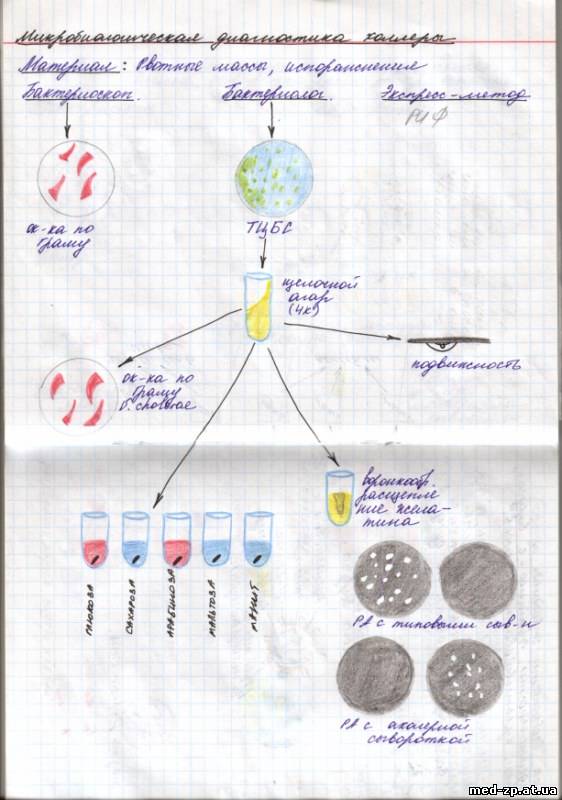 Микробиологическая диагностика холеры
Материал: Рвотные массы, испоражнения
Бактериоскоп. Бактериолог. Экспресс-метод
РИФ
ок-ка по
граму
ТЦБС
щелочной
агар
(ЧК)
ок-ка по
граму
подвижность
воронкообр.
расщепле
ние жела-
тина
глюкоза
сахароза
арабиноза
мальтоза
маннит
РА с типовыми сыв-и
РА с холерной
сывороткой
med-zp.at.ua